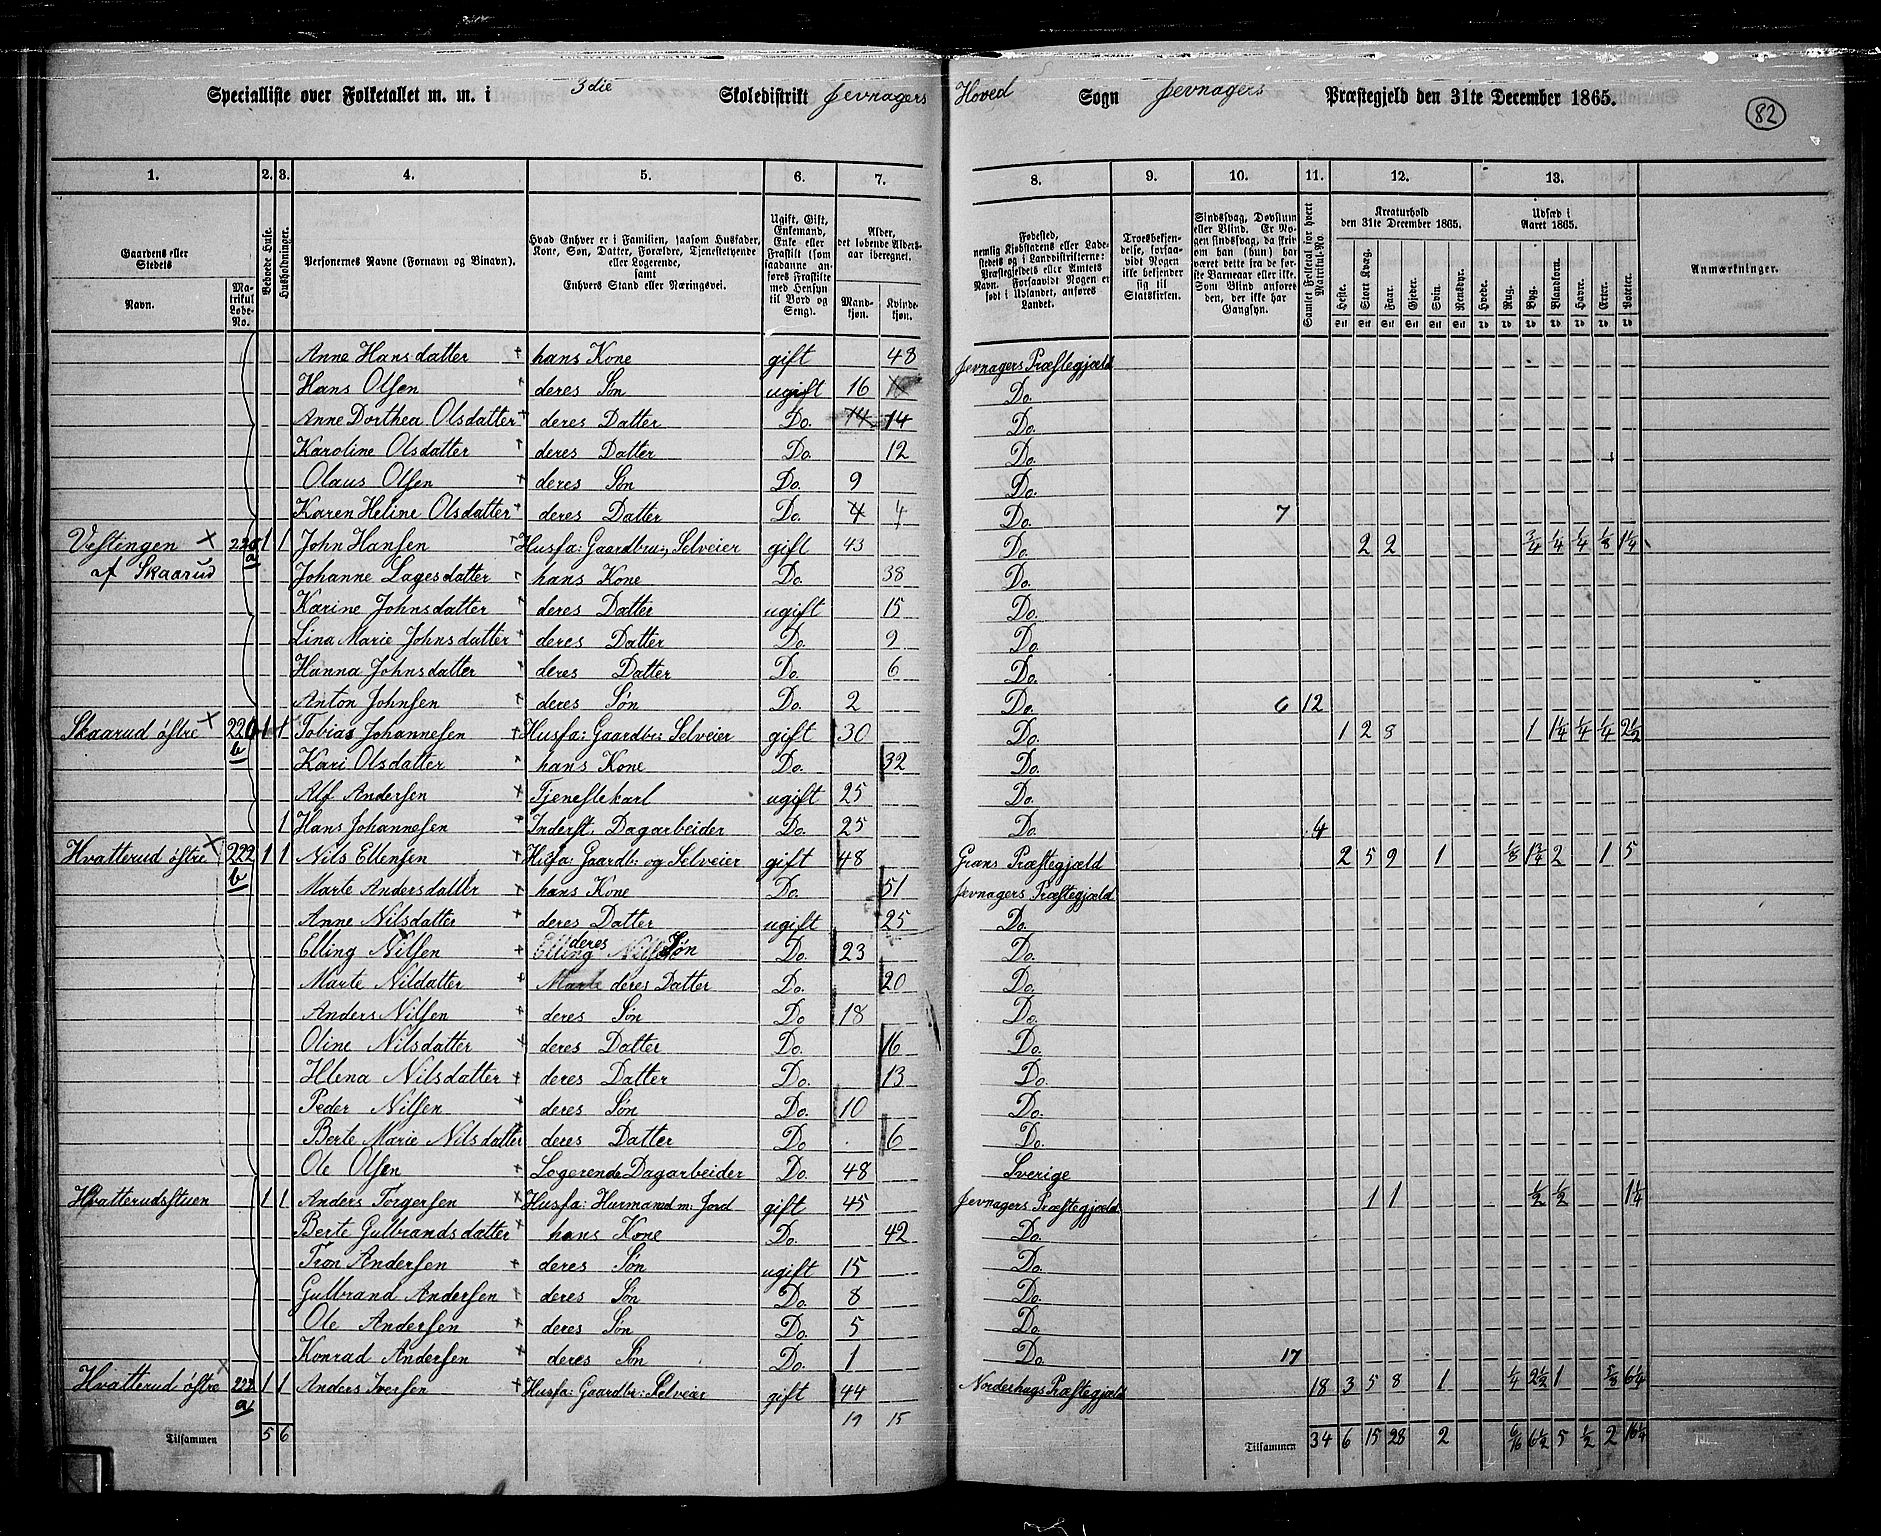 Specialliste over Folketallet m. m. i 3die Skoledistrikt Jevnagers Hoved Sogn Jevnagers Præstegjeld den 31te December 1865.
82
1. 2. 3. 4. 5. 6. 7. 8. 9. 10. 11. 12. 13.
Gaardens eller Stedets
Navn. Matrikul Løbe-No.
Beboede Huse.
Husholdninger.
Personernes Navne (Fornavn og Binavn).
Hvad Enhver er i Familien, saasom Husfader, Kone, Søn, Datter, Forældre, Tjenestetyende eller Logerende, samt Enhvers Stand eller Næringsvei.
Ugift, Gift, Enkemand, Enke eller Fraskilt (som saadanne anføres Fraskilte med Hensyn til Bord og Seng).
Alder, det løbende Aldersaar iberegnet.
Mandkjøn. Kvindekjøn.
Fødested, nemlig Kjøbstadens eller Ladestedets og i Landdistrikterne: Præstegjeldets eller Amtets Navn. Forsaavidt Nogen er født i Udlandet, anføres Landet.
Troesbekjendelse, forsaavidt Nogen ikke bekjender sig til Statskirken.
Sindssvag, Døvstum eller Blind. Er Nogen sindssvag, da skrives om han (hun) har været dette fra de første Barneaar eller ikke. Som Blind anføres den, der ikke har Gangsyn.
Samlet Folketal for hvert Matrikul-No.
Kreaturhold den 31te December 1865.
Heste. Stort Kvæg. Faar. Gjeder. Svin. Rensdyr.
Udsæd i Aaret 1865.
Hvede. Rug. Byg. Blandkorn. Havre. Erter. Poteter.
Anmærkninger.
Anne Hansdatter hans Kone gift 48 Jevnagers Præstegjæld
Hans Olsen deres Søn ugift 16 Do.
Anne Dorthea Olsdatter deres Datter Do. 14 14 Do.
Karoline Olsdatter deres Datter Do. 12 Do.
Olaus Olsen deres Søn Do. 9 Do.
Karen Heline Olsdatter deres Datter Do. 4 4 Do. 7
Vestengen af Skaarud 220 a 1 1 John Hansen Husfa: Gaardbru:, Selveier gift 43 Do. 2 2 3/4 1/4 1/4 1/8 1 1/4
Johanne Lagesdatter hans Kone Do. 38 Do.
Karine Johnsdatter deres Datter ugift 15 Do.
Lina Marie Johnsdatter deres Datter Do. 9 Do.
Hanna Johnsdatter deres Datter Do. 6 Do.
Anton Johnsen deres Søn Do. 2 Do. 6 12
Skaarud østre 220 b 1 1 Tobias Johannesen Husfa: Gaardbr: Selveier gift 30 Do. 1 2 8 1 1 1/4 1/4 1/4 2 1/2
Kari Olsdatter hans Kone Do. 32 Do.
Alf Andersen Tjenestekarl ugift 25 Do.
1 Hans Johannesen Inderst, Dagarbeider Do. 25 Do. 4
Hvatterud østre 222 b 1 1 Nils Ellensen Husfa: Gaardb: og Selveier gift 48 Grans Præstegjæld 2 5 9 1 1/8 1 3/4 2 1 5
Marte Andersdatter hans Kone Do. 51 Jevnagers Præstegjæld
Anne Nilsdatter deres Datter ugift 25 Do.
Elling Nilsen deres Søn Do. 23 Do.
Marte Nildatter deres Datter Do. 20 Do.
Anders Nilsen deres Søn Do 18 Do.
Oline Nilsdatter deres Datter Do. 16 Do.
Hlena Nilsdatter deres Datter Do. 13 Do.
Peder Nilsen deres Søn Do. 10 Do.
Berte Marie Nilsdatter deres Datter Do 6 Do.
Ole Olsen Logerende Dagarbeider Do. 48 Sverige
Hvatterudstuen 1 1 Anders Torgersen Husfa: Husmand m: Jord gift 45 Jevnagers Præstegjæld 1 1 1/2 1/2 1 1/4
Berte Gulbrandsdatter hans Kone Do. 42 Do.
Tron Andersen deres Søn ugift 15 Do.
Gulbrand Andersen deres Søn Do. 8 Do.
Ole Andersen deres Søn Do. 5 Do.
Konrad Andersen deres Søn Do. 1 Do. 17
Hvatterud østre 222 a 1 1 Anders Iversen Husfa: Gaardbr: Selveier gift 44 Norderhugs Præstegjæld 18 3 5 8 1 1/4 2 1/2 1 5/8 6 1/4
19 15
Tilsammen 5 6 Tilsammen 34 6 15 28 2 6 1/2 5 1/2 2 16 1/4